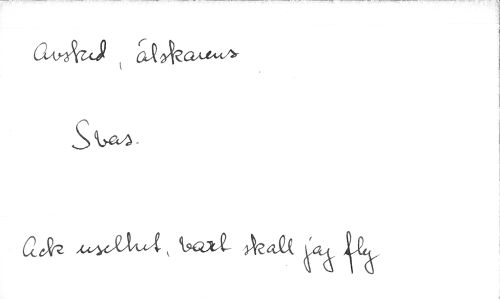 Avsked, älskarens
Svas.
Ack uselhet, vart skall jag fly